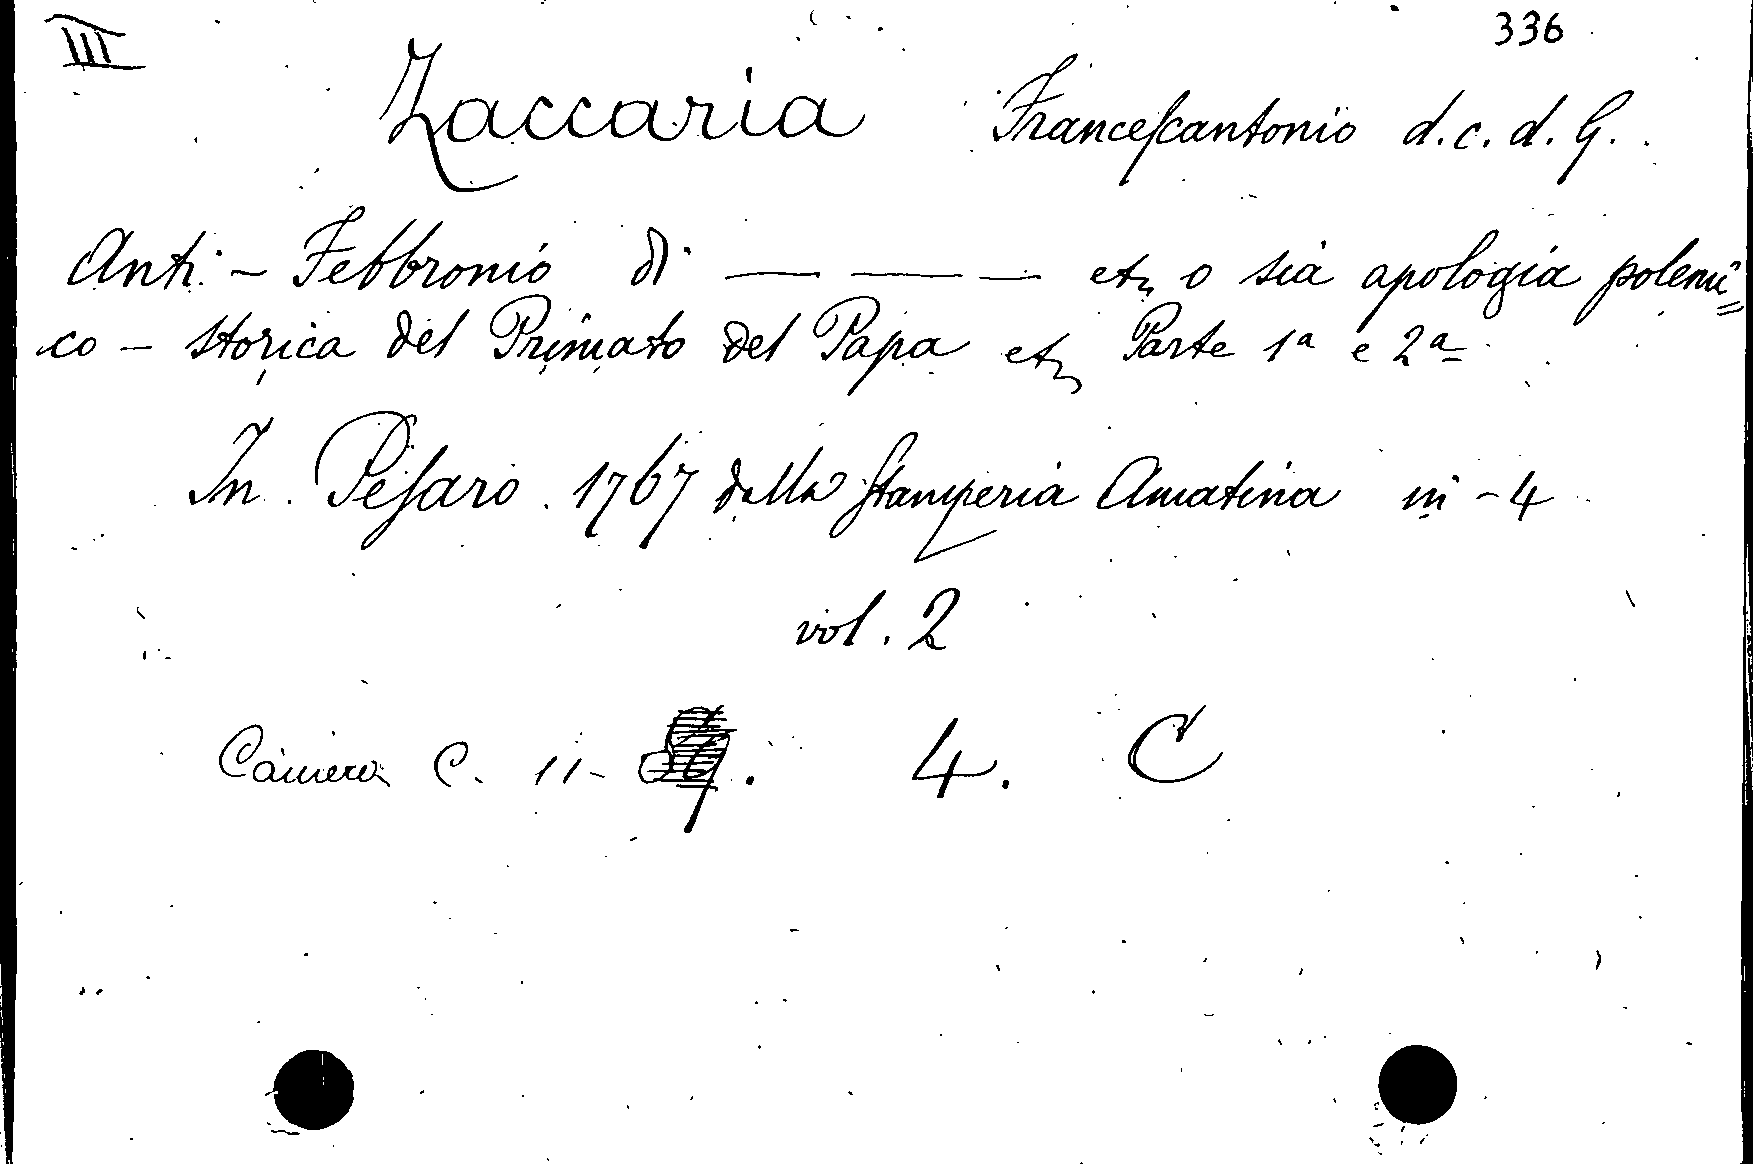 III 336
Zaccaria Francescantonio d.c.d.G.
Anti-Febbronio di — — — etc o sia apologia polemi=
co-storica del Primato del Papa etc Parte 1ª e 2ª
In Pesaro 1767 dalla Stamperia Amatina in-4
vol. 2
Camera C. 11- . 4. C